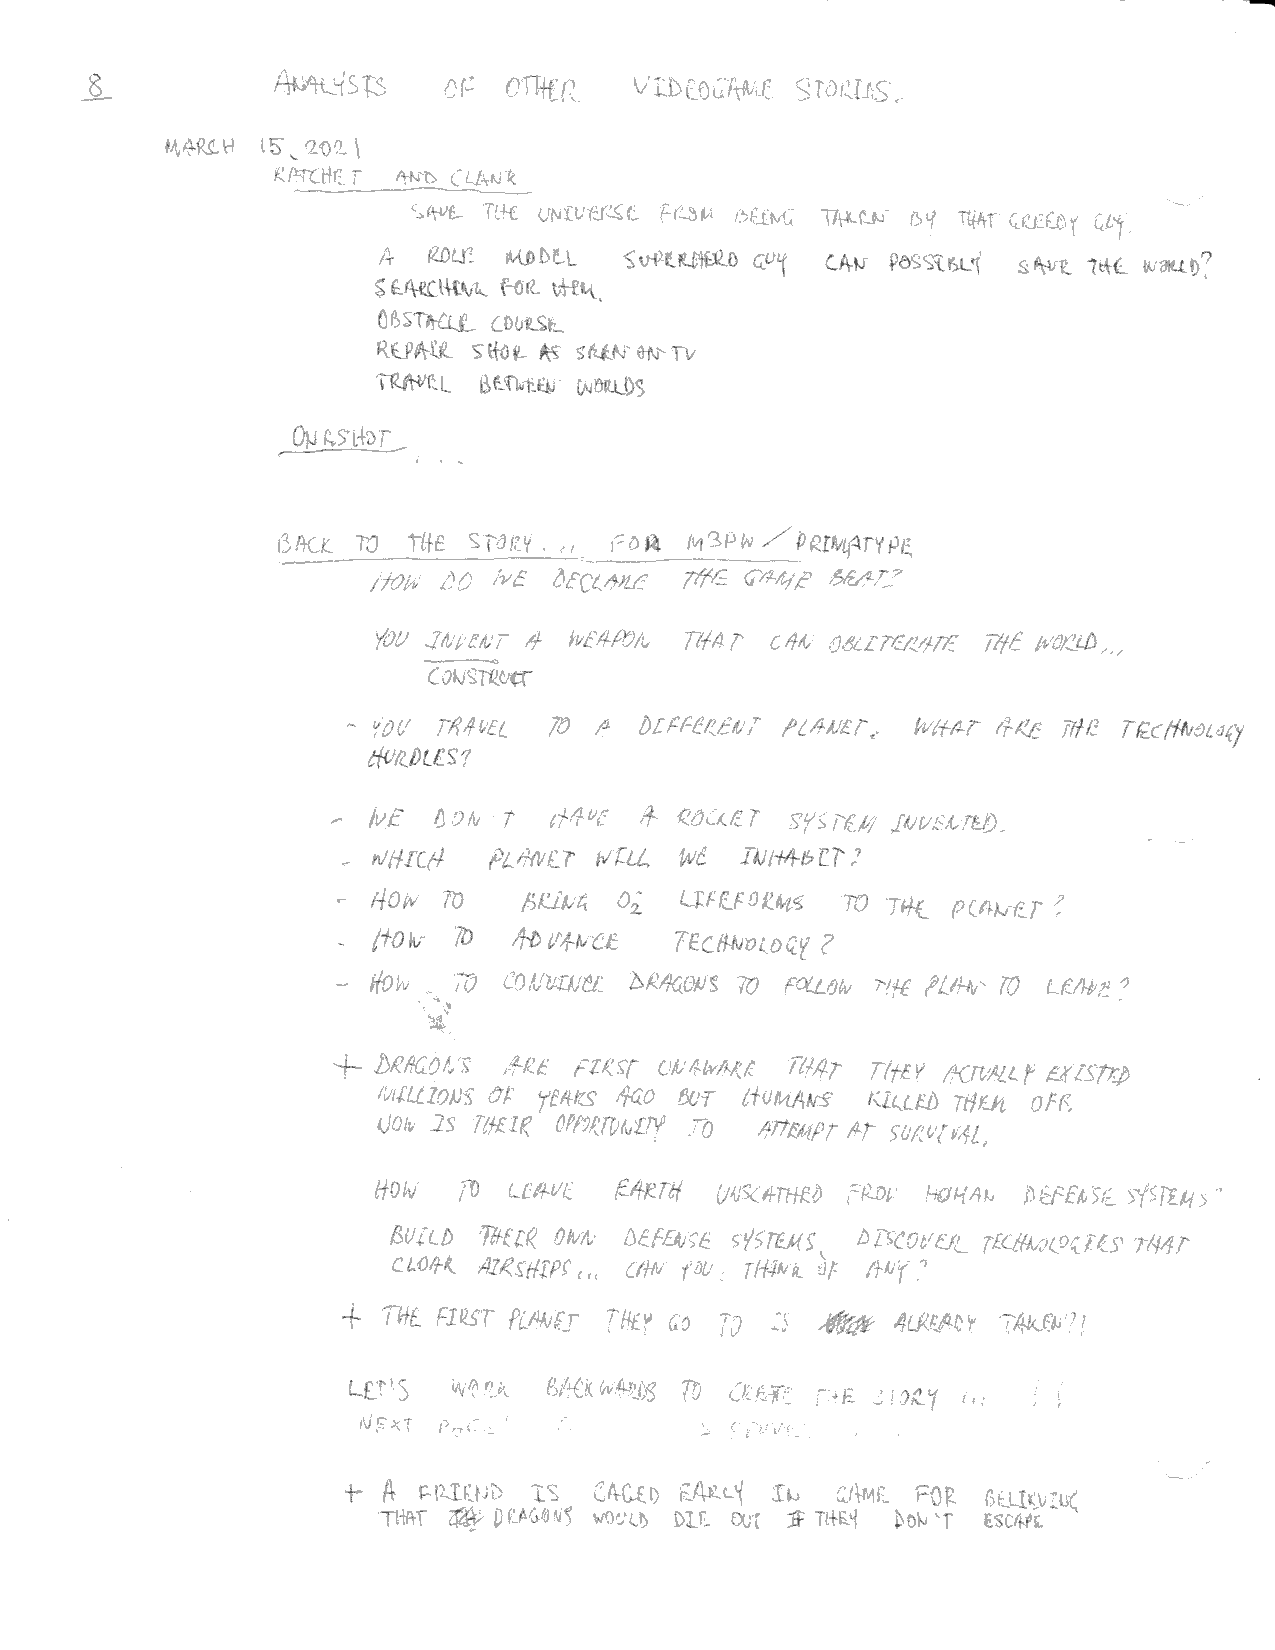 8
ANALYSIS OF OTHER VIDEOGAME STORIES.
MARCH 15, 2021
RATCHET AND CLANK
SAVE THE UNIVERSE FROM BEING TAKEN BY THAT GREEDY GUY.
A ROLE MODEL SUPERHERO GUY CAN POSSIBLY SAVE THE WORLD?
SEARCHING FOR HIM.
OBSTACLE COURSE
REPAIR SHOP AS SEEN ON TV
TRAVEL BETWEEN WORLDS
ONESHOT
...
BACK TO THE STORY... FOR M3PW / PRIMATYPE
HOW DO WE DECLARE THE GAME BEAT?
YOU INVENT A WEAPON THAT CAN OBLITERATE THE WORLD...
CONSTRUCT
- YOU TRAVEL TO A DIFFERENT PLANET. WHAT ARE THE TECHNOLOGY
HURDLES?
- WE DON'T HAVE A ROCKET SYSTEM INVENTED.
- WHICH PLANET WILL WE INHABIT?
- HOW TO BRING O2 LIFEFORMS TO THE PLANET?
- HOW TO ADVANCE TECHNOLOGY?
- HOW TO CONVINCE DRAGONS TO FOLLOW THE PLAN TO LEAVE?
+ DRAGONS ARE FIRST UNAWARE THAT THEY ACTUALLY EXISTED
MILLIONS OF YEARS AGO BUT HUMANS KILLED THEM OFF.
NOW IS THEIR OPPORTUNITY TO ATTEMPT AT SURVIVAL.
HOW TO LEAVE EARTH UNSCATHED FROM HUMAN DEFENSE SYSTEMS?
BUILD THEIR OWN DEFENSE SYSTEMS, DISCOVER TECHNOLOGIES THAT
CLOAK AIRSHIPS... CAN YOU THINK OF ANY?
+ THE FIRST PLANET THEY GO TO IS ALREADY TAKEN?!
LET'S WORK BACKWARDS TO CREATE THE STORY ...
NEXT PAGE
+ A FRIEND IS CAGED EARLY IN GAME FOR BELIEVING
THAT DRAGONS WOULD DIE OUT IF THEY DON'T ESCAPE